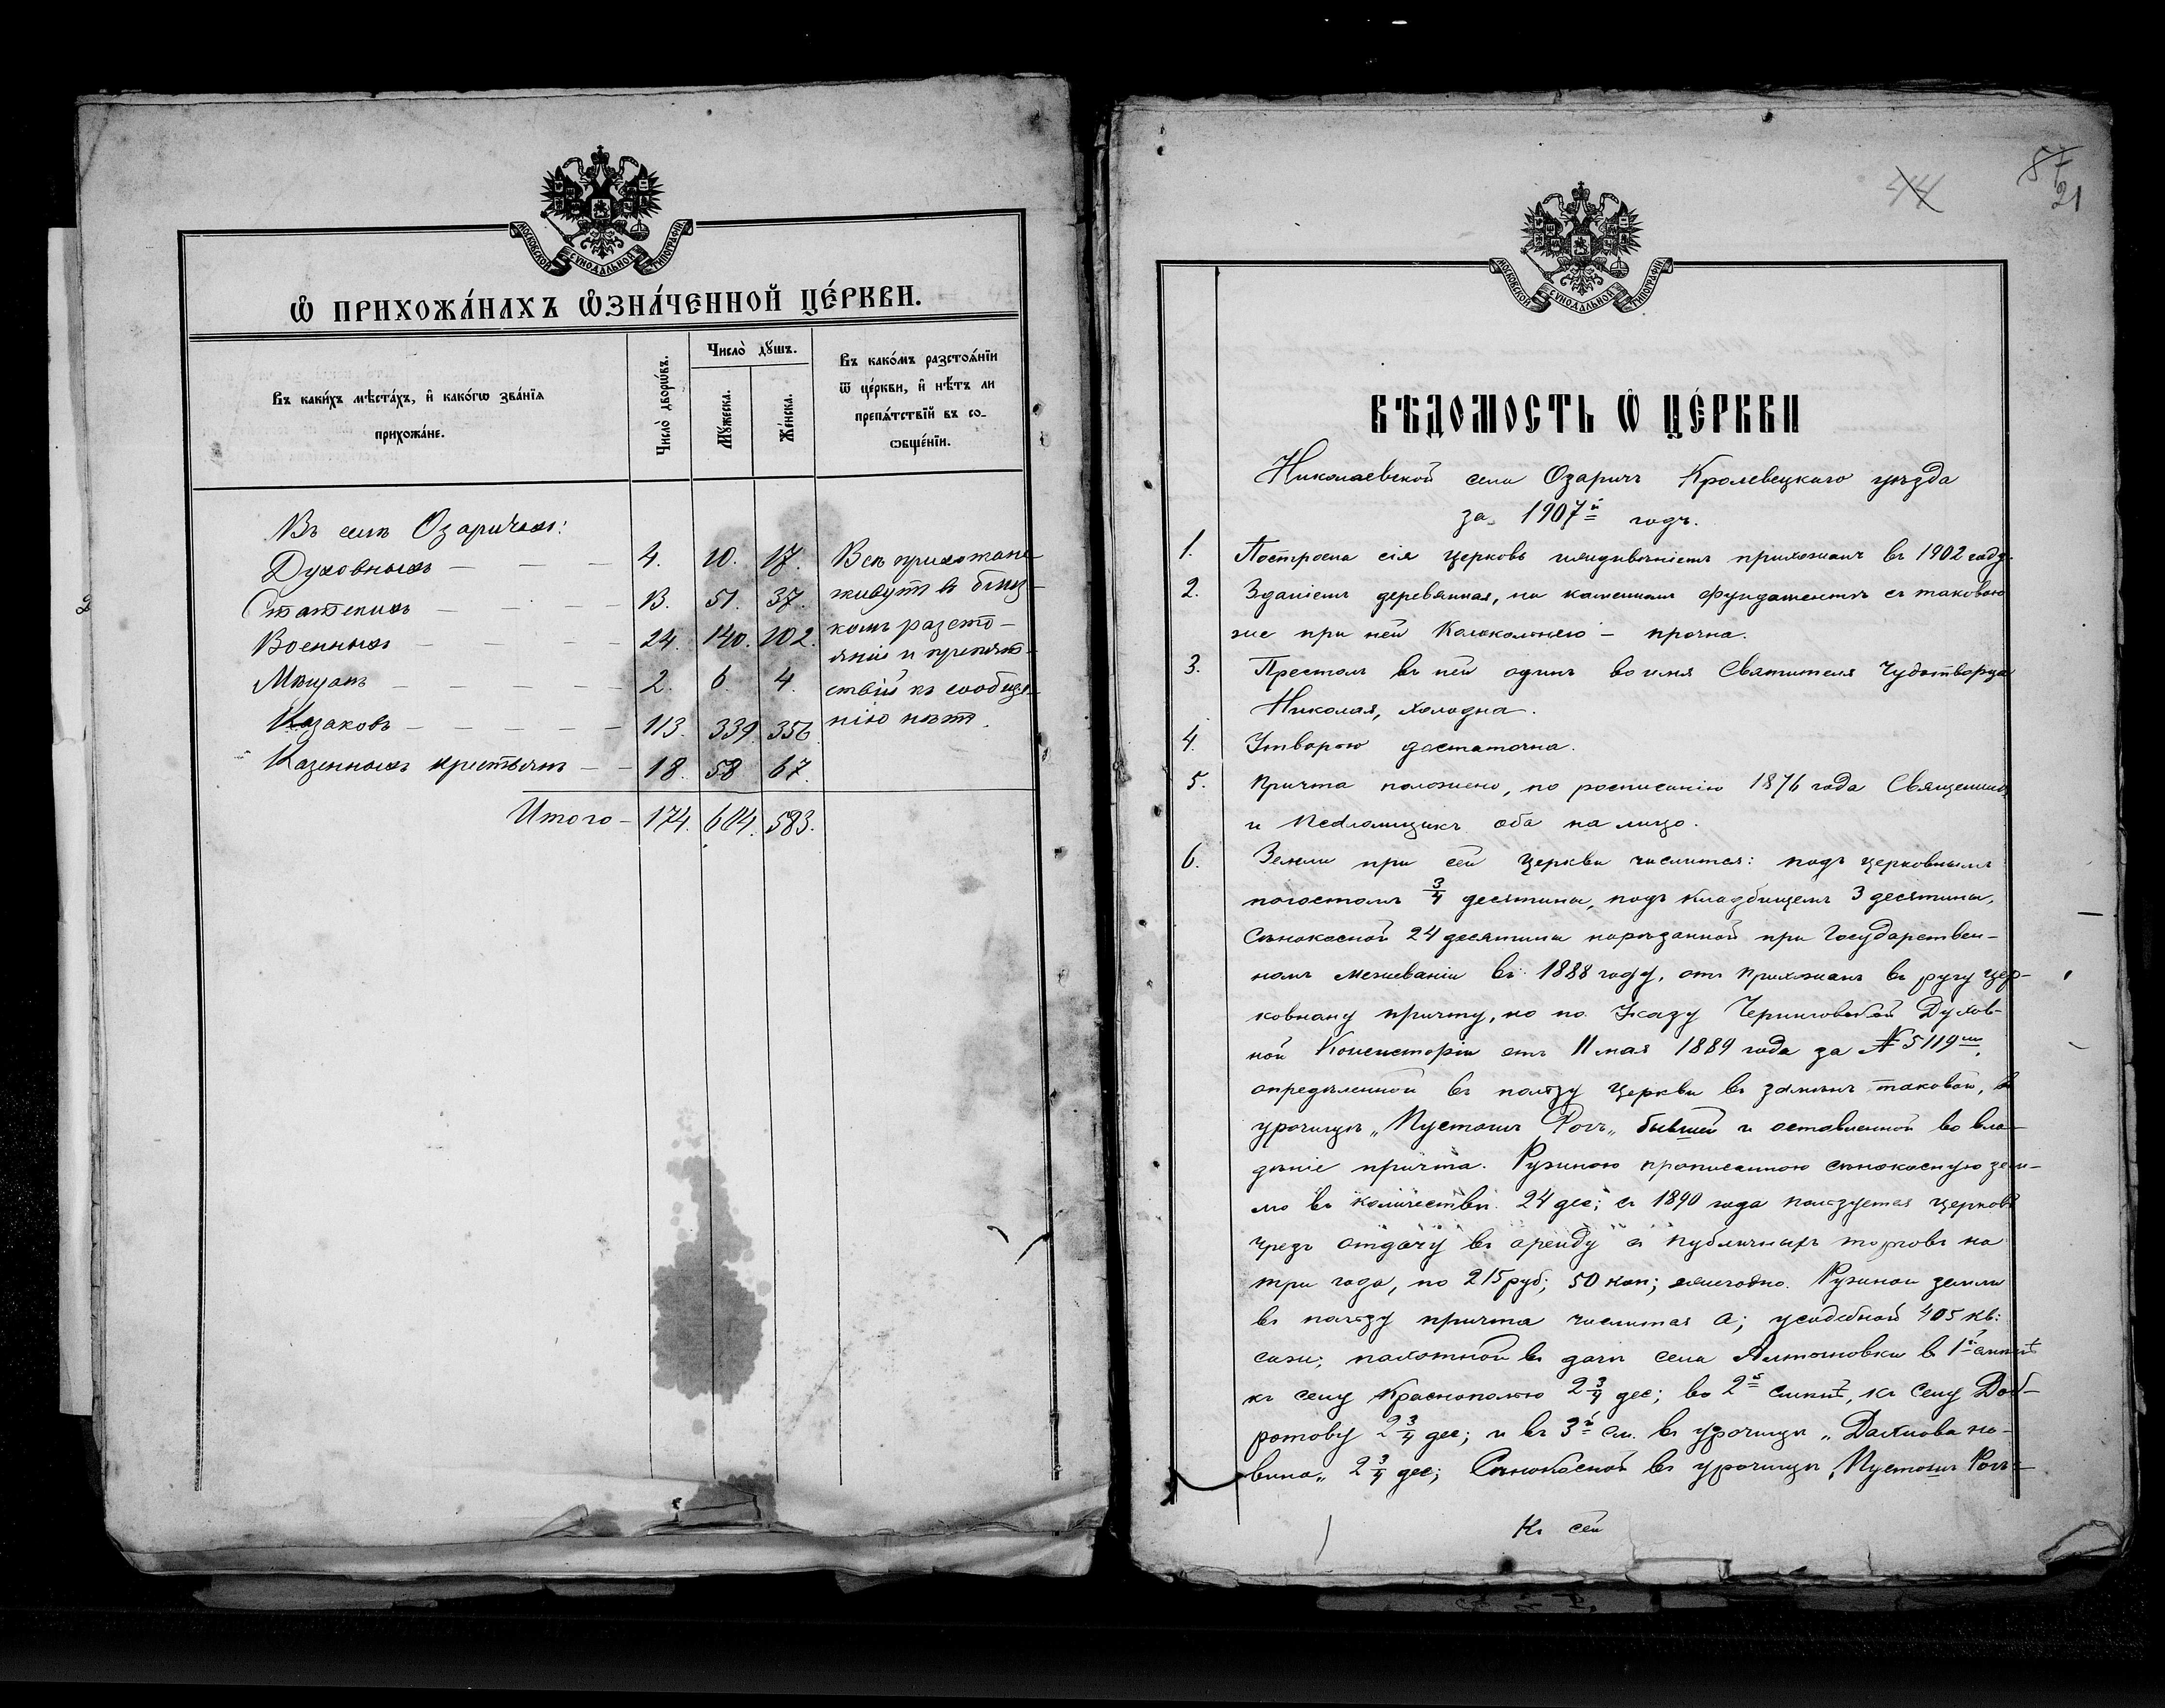 МОСКОВСКОЙ СѴНОДАЛЬНОЙ ТИПОГРАФІИ
Ѽ ПРИХОЖА́НАХЪ Ѡ҆ЗНА́ЧЕННОЙ ЦЕ́РКВИ.
Въ каки́хъ мѣста́хъ, и҆ како́гѡ зва́нїѧ
прихожа́не.
Число̀ дворѡ́въ.
Число̀ дꙋ́шъ.
Мꙋ́жеска.
Же́нска.
Въ како́мъ разстоѧ́нїи
ѿ це́ркви, и҆ нѣ́тъ ли
препѧ́тствїй въ со-
ѻбще́нїи.
Въ селѣ Озаричахъ:
Духовныхъ — — — 4. 10. 17. Всѣ прихожане
Статскихъ — — — 13. 51. 37. живутъ въ близ-
Военныхъ — — — 24. 140. 102. комъ разсто-
яніи и препят-
Мѣщанъ — — — 2. 6. 4. ствій къ сообще-
Казаковъ — — — 113. 339. 356. нію нѣтъ.
Казенныхъ крестьянъ — — 18. 58. 67.
Итого — 174. 604. 583.
44
87
21
МОСКОВСКОЙ СѴНОДАЛЬНОЙ ТИПОГРАФІИ
ВѢДОМОСТЬ Ѽ ЦЕ́РКВИ
Николаевской села Озаричъ Кролевецкаго уѣзда
за 1907й годъ.
1. Построена сія церковь прихожанъ въ 1902 году.
2. Зданіемъ деревянная, на каменномъ фундаментѣ съ таковою
же при ней колокольнею — прочна.
3. Престолъ въ ней одинъ во имя Святителя Чудотворца
Николая, холодна.
4. Утварью достаточна.
5. Причта положено, по росписанію 1876 года Священникъ
и Псаломщикъ оба на лицо.
6. Земли при сей церкви числится: подъ церковнымъ
погостомъ 3/4 десятины, подъ кладбищемъ 3 десятины,
сѣнокосной 24 десятины нарѣзанной при Государствен-
номъ межеваніи въ 1888 году, отъ прихожанъ въ ругу цер-
ковному причту, но по Указу Черниговской Духов-
ной Консисторіи отъ 11 мая 1889 года за № 5119мъ,
опредѣленной въ пользу церкви въ замѣнъ таковой, въ
урочищѣ „Пустошъ Рогъ„ бывшей и оставленной во вла-
дѣніе причта. Ружною прописанною сѣнокосную зем-
лю въ количествѣ 24 дес; съ 1890 года пользуется церковь
чрезъ отдачу въ аренду съ публичныхъ торговъ на
три года, по 215 руб; 50 коп; ежегодно. Ружной земли
въ пользу причта числится а; усадебной 405 кв:
саж; пахотной въ дачи села Алтыновки въ 1й смѣнѣ
къ селу Краснополью 2 3/4 дес; во 2й смѣнѣ, къ селу Доб-
ротову 2 3/4 дес; и въ 3й см. въ урочищѣ „Дахнова но-
вина„ 2 3/4 дес; Сѣнокосной въ урочищѣ „Пустошъ Рогъ„
Къ сей